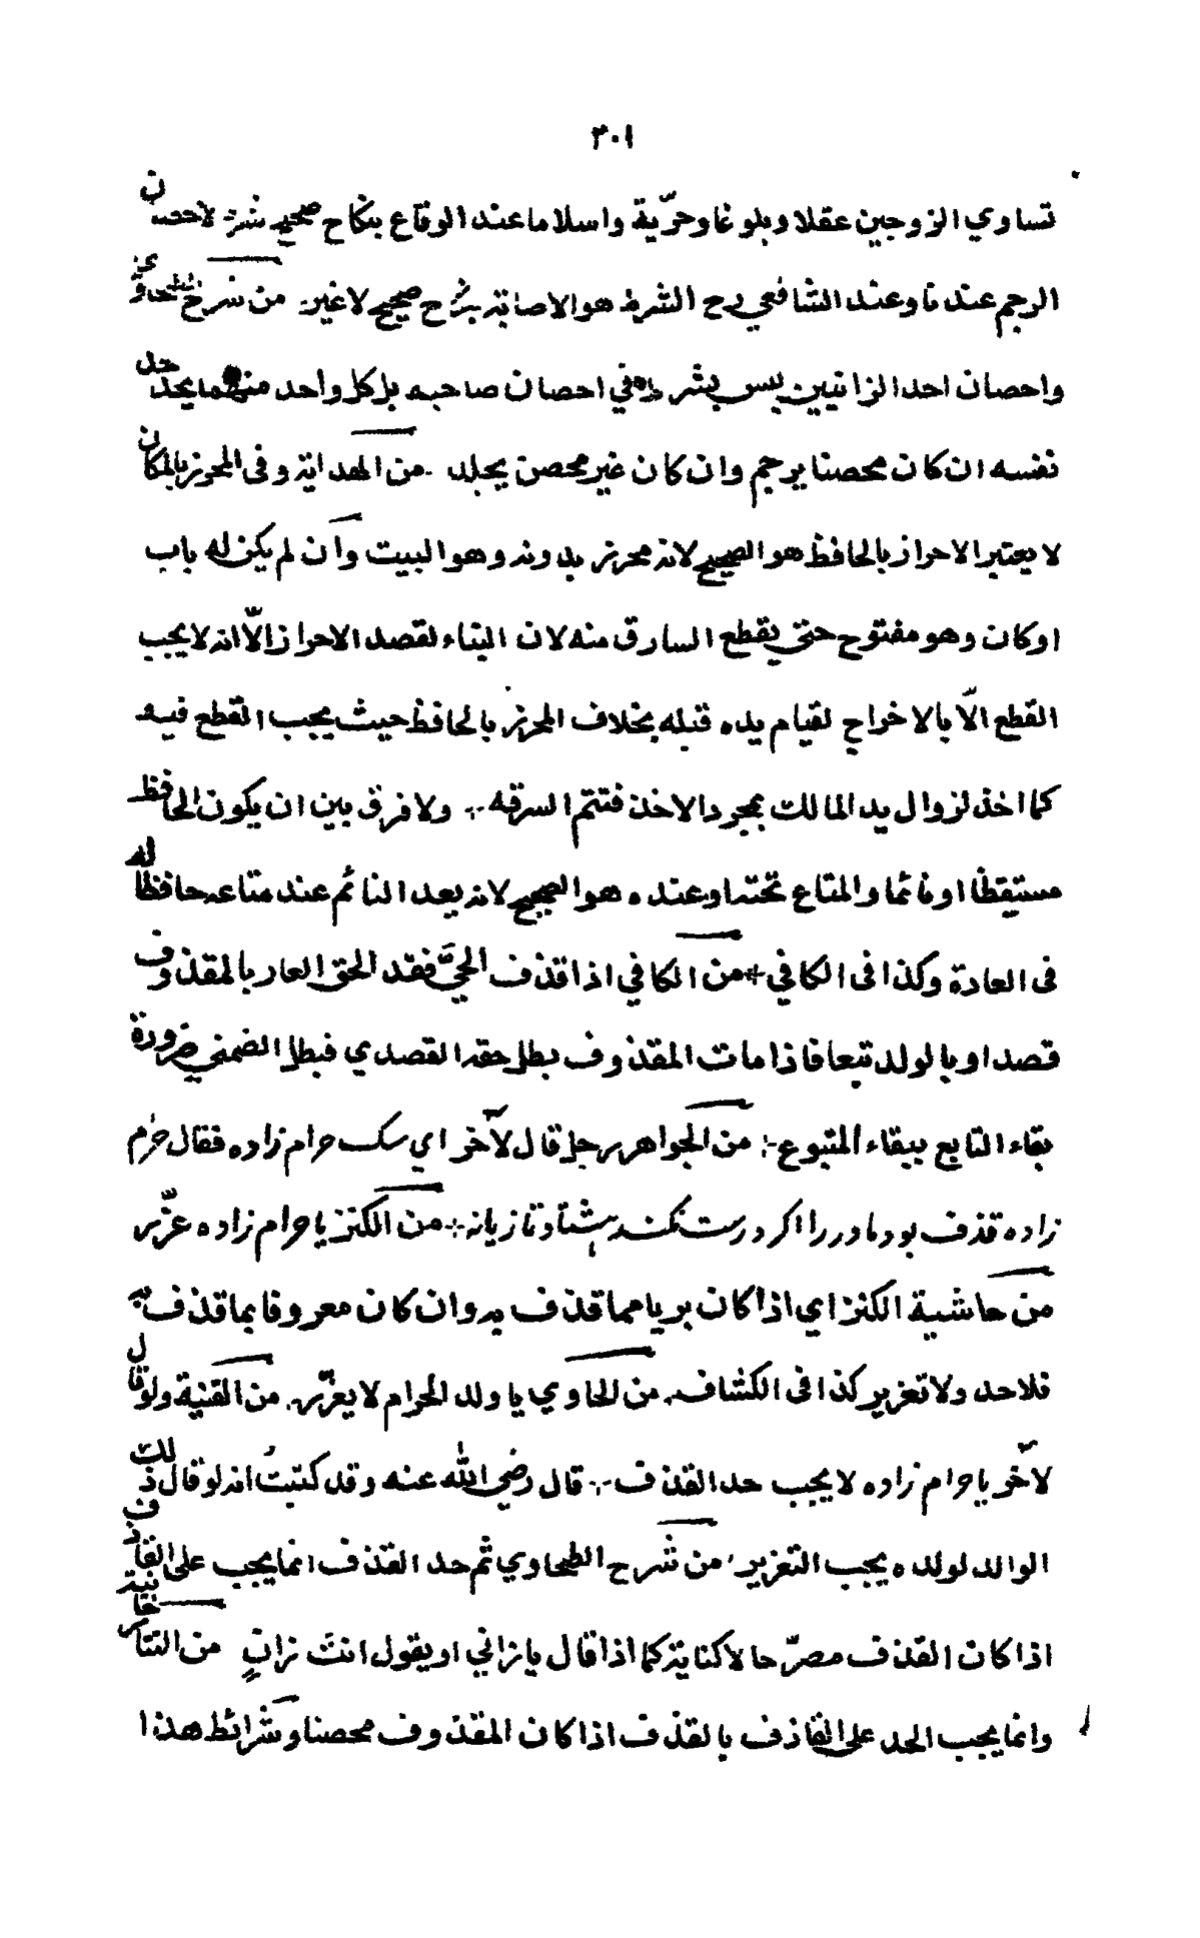 ٣٠١
تساوي الزوجين عقلا وبلوغا وحرّية واسلاما عند الوقاع بنكاح صحيح شرط لاحصان
الرجم عندنا وعند الشافعي رح الشرط هو الاصابة بنكاح صحيح لا غير من شرح الطحاوي
واحصان احد الزانيين ليس بشرط في احصان صاحبه بل كل واحد منهما يحد حد
نفسه ان كان محصنا يرجم وان كان غير محصن يجلد من الهداية وفي المحرز بالمكان
لا يعتبر الاحراز بالحافظ هو الصحيح لانه محرز بدونه وهو البيت وان لم يكن له باب
او كان وهو مفتوح حتى يقطع السارق منه لان البناء لقصد الاحراز الّا انه لا يجب
القطع الّا بالاخراج لقيام يده قبله بخلاف المحرز بالحافظ حيث يجب القطع فيه
كما اخذ لزوال يد المالك بمجرد الاخذ فتتم السرقه ولا فرق بين ان يكون الحافظ
مستيقظا او نائما والمتاع تحته او عنده هو الصحيح لانه يعد النائم عند متاعه حافظًا له
فى العادة وكذا فى الكافي من الكافي اذا قذف الحيَّ فقد الحق العار بالمقذوف
قصدا وبالولد تبعا فاذا مات المقذوف بطل حقه القصدي فبطل الضمني ضرورة
بقاء التابع ببقاء المتبوع من الجواهر رجل قال لآخر اي سك حرام زاده فقال حرم
زاده قذف بود مادر را اكر درست نكند هشتاد تازيانه من الكنز يا حرام زاده عزّر
من حاشية الكنز اي اذا كان بريا مما قذف به وان كان معروفا بما قذف به
فلا حد ولا تعزير كذا فى الكشاف من الحاوي يا ولد الحرام لا يعزّر من القنية ولو قال
لآخر يا حرام زاده لا يجب حد القذف قال رضي الله عنه وقد كتبتُ انه لو قال ذلك
الوالد لولده يجب التعزير من شرح الطحاوي ثم حد القذف انما يجب على القاذف
اذا كان القذف مصرّحا لا كناية كما اذا قال يا زاني او يقول انتَ زانٍ من التتارخانية
وانما يجب الحد على القاذف بالقذف اذا كان المقذوف محصنا وشرائط هذا